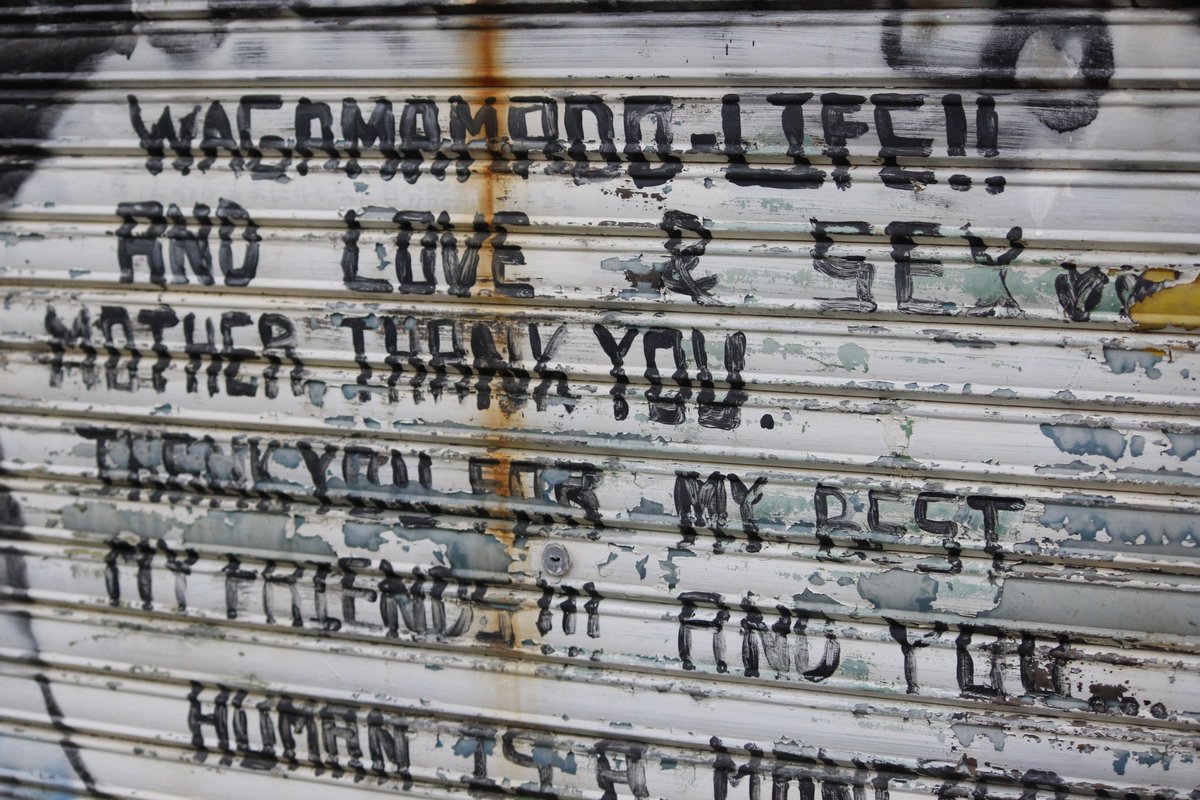 WAGAMAMANA_LIFE!!
AND LOVE & SEX
MOTHER. THANK YOU!
THANK YOU FOR MY BEST
MY FRIENDS!!! AND YOU..
HUMAN IS A